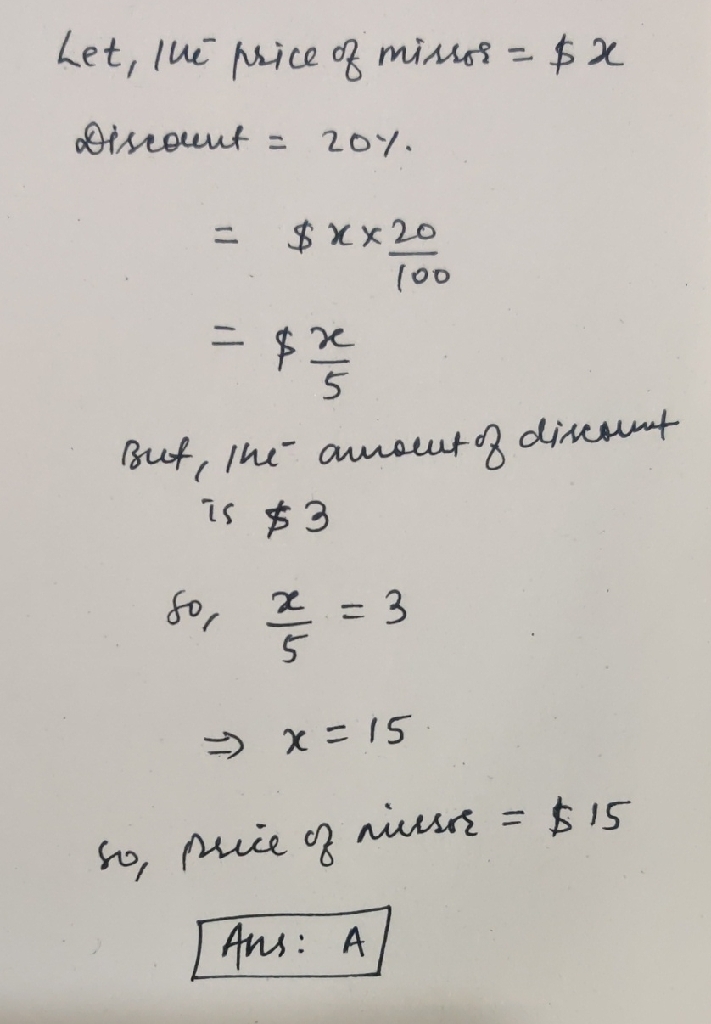 Let, the price of mirror = $ x
Discount = 20%.
= $ x × 20/100
= $ x/5
But, the amount of discount
is $3
So, x/5 = 3
⇒ x = 15
So, price of mirror = $ 15
Ans: A